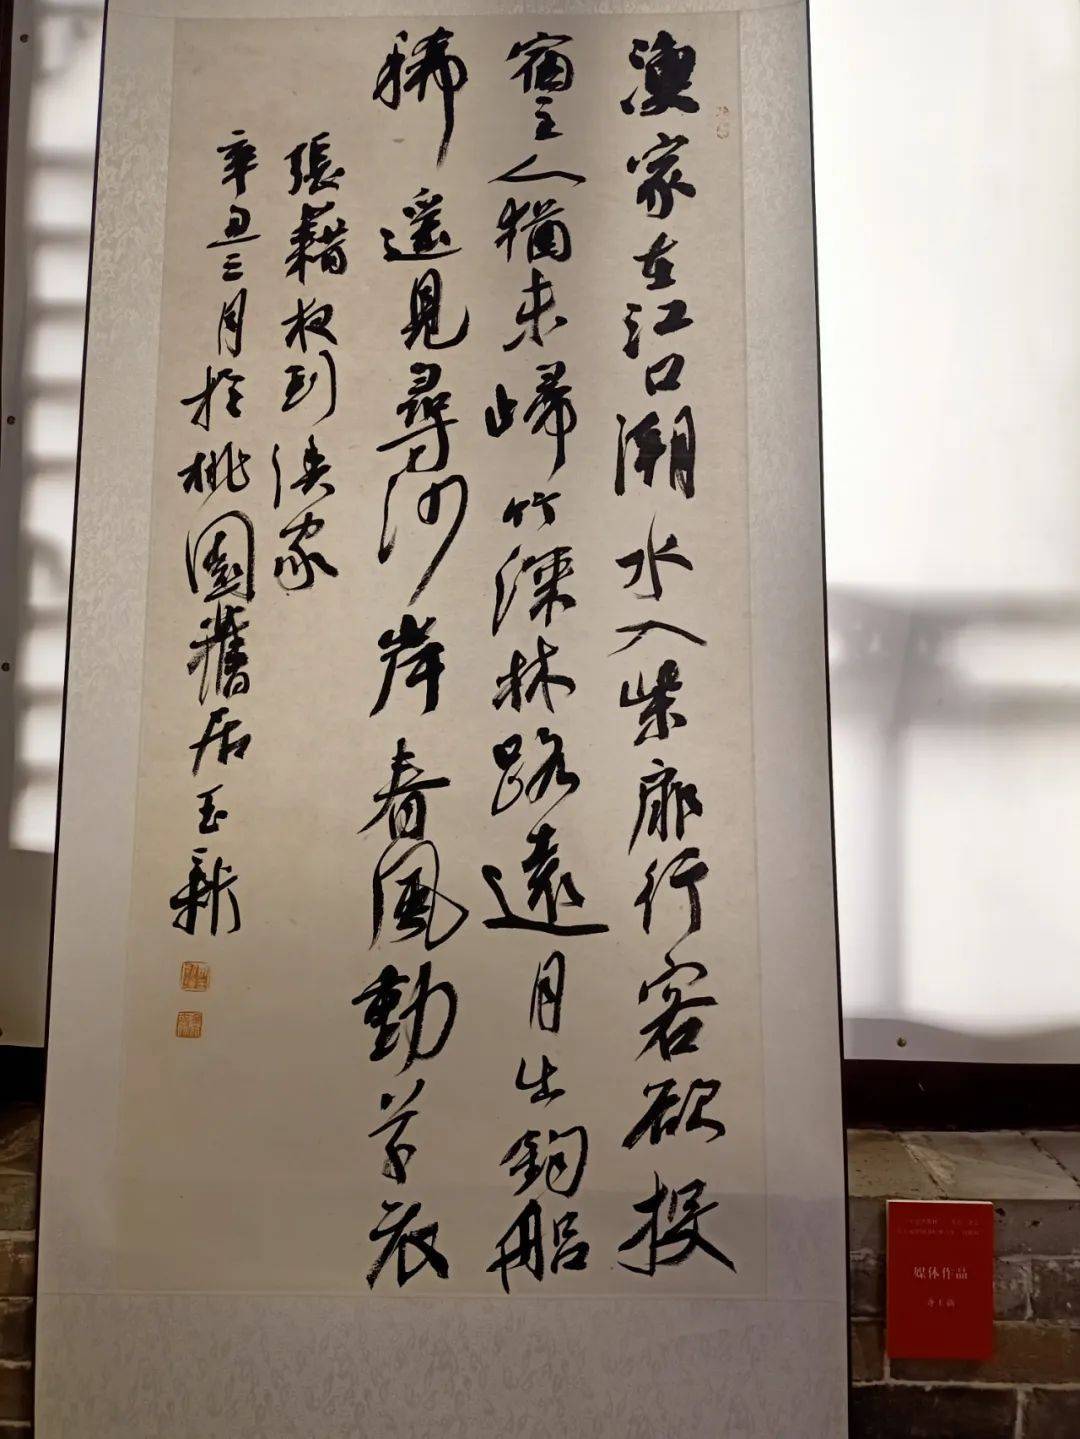 漁家在江口潮水入柴扉行客欲投
宿主人猶未歸竹深林路遠月出釣船
稀遥見尋沙岸春風動草衣
張籍夜到漁家
辛丑三月於桃園舊居玉新
媒体作品